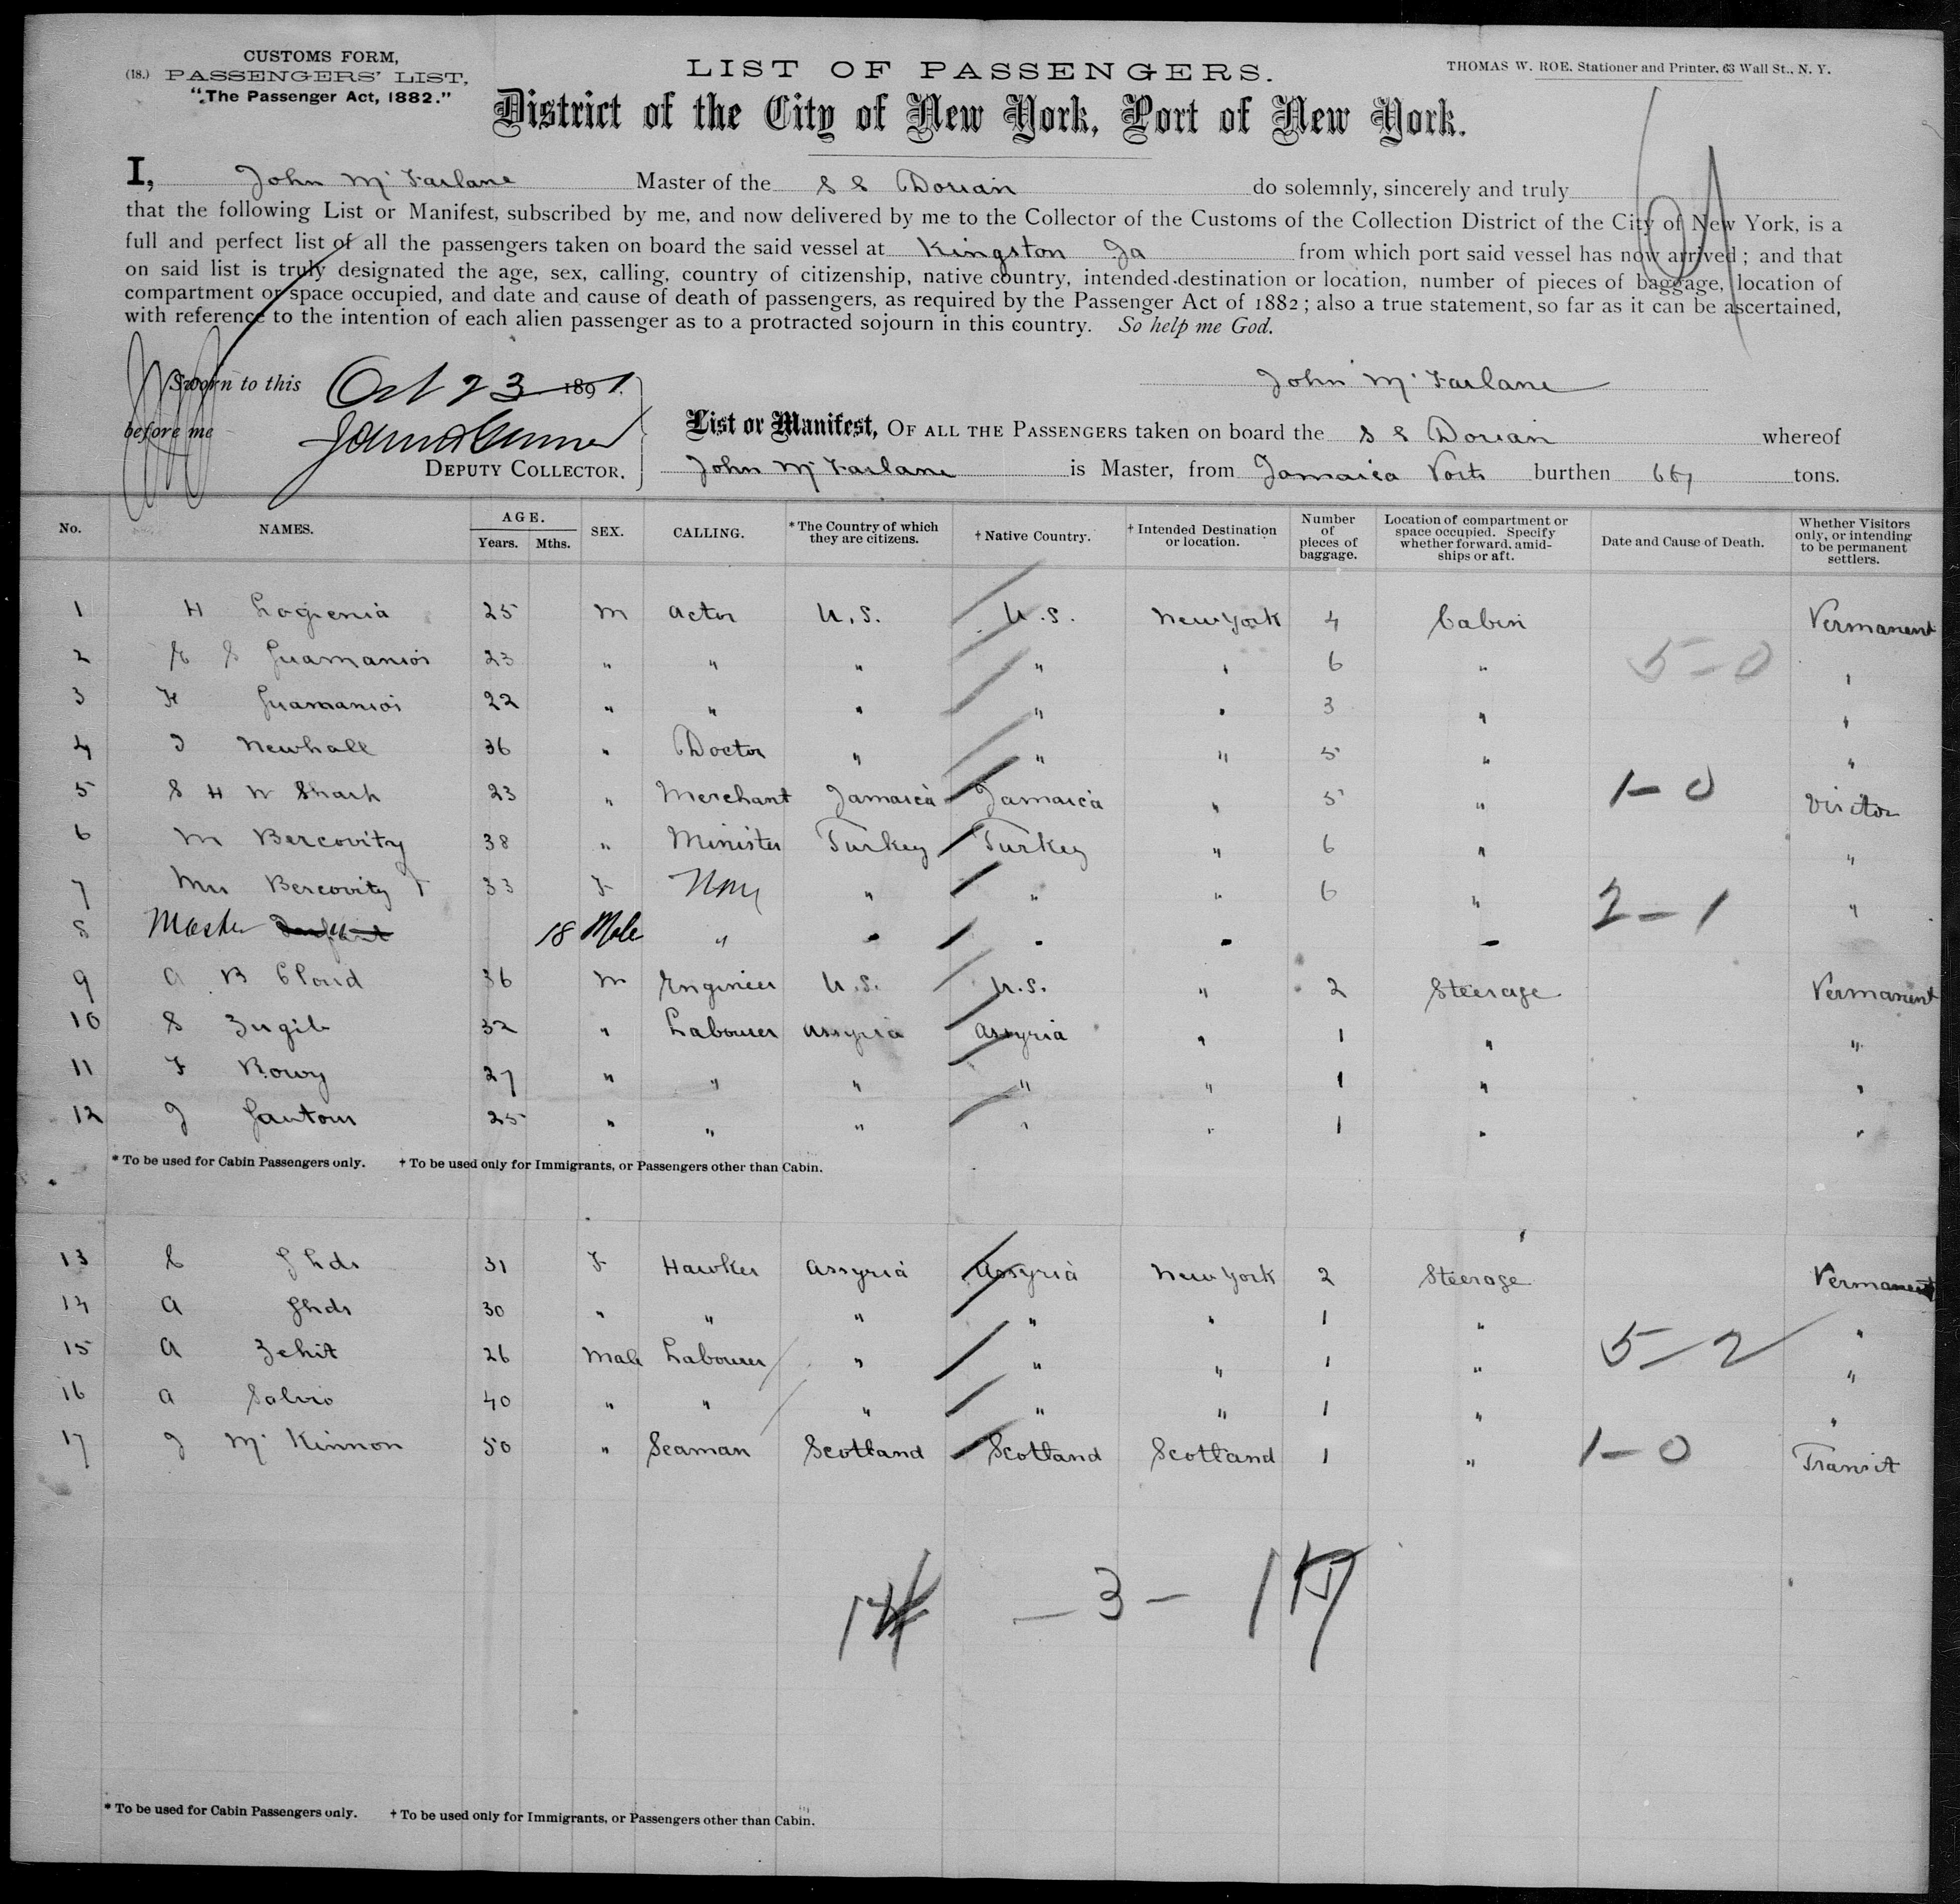 CUSTOMS FORM,
(18.) PASSENGERS' LIST,
"The Passenger Act, 1882."
LIST OF PASSENGERS.
THOMAS W. ROE, Stationer and Printer, 63 Wall St., N. Y.
District of the City of New York, Port of New York.
I, John McFarlane Master of the S S Dorian do solemnly, sincerely and truly
that the following List or Manifest, subscribed by me, and now delivered by me to the Collector of the Customs of the Collection District of the City of New York, is a
full and perfect list of all the passengers taken on board the said vessel at Kingston Ja from which port said vessel has now arrived; and that
on said list is truly designated the age, sex, calling, country of citizenship, native country, intended destination or location, number of pieces of baggage, location of
compartment or space occupied, and date and cause of death of passengers, as required by the Passenger Act of 1882; also a true statement, so far as it can be ascertained,
with reference to the intention of each alien passenger as to a protracted sojourn in this country. So help me God.
John McFarlane
Sworn to this Oct 23 1891.
before me
DEPUTY COLLECTOR.
List or Manifest, OF ALL THE PASSENGERS taken on board the S S Dorian whereof
John McFarlane is Master, from Jamaica Ports burthen 667 tons.
No. NAMES. AGE. Years. Mths. SEX. CALLING. *The Country of which they are citizens. †Native Country. †Intended Destination or location. Number of pieces of baggage. Location of compartment or space occupied. Specify whether forward, amidships or aft. Date and Cause of Death. Whether Visitors only, or intending to be permanent settlers.
1 H 25 m Actor U.S. U.S. New York 4 Cabin Permanent
2 23 " " " " " 6 " 5-0 "
3 22 " " " " " 3 " "
4 J Newhall 36 " Doctor " " " 5 " "
5 S H W Sharp 23 " Merchant Jamaica Jamaica " 5 " 1-0 Visitor
6 M Bercovitz 38 " Minister Turkey Turkey " 6 " "
7 Mrs Bercovitz 33 F None " " " 6 " 2-1 "
8 Master Infant 18 Male " " " " "
9 A B Cloud 36 m Engineer U.S. U.S. " 2 Steerage Permanent
10 S 32 " Labourer Assyria Assyria " 1 " "
11 F 27 " " " " " 1 " "
12 J 25 " " " " " 1 " "
* To be used for Cabin Passengers only. † To be used only for Immigrants, or Passengers other than Cabin.
13 31 F Hawker Assyria Assyria New York 2 Steerage Permanent
14 A 30 " " " " " 1 " "
15 A Zehit 26 Male Labourer " " " 1 " 5-2 "
16 A Salvio 40 " " " " " 1 " "
17 J McKinnon 50 " Seaman Scotland Scotland Scotland 1 " 1-0 Transit
14 - 3 - 17
* To be used for Cabin Passengers only. † To be used only for Immigrants, or Passengers other than Cabin.